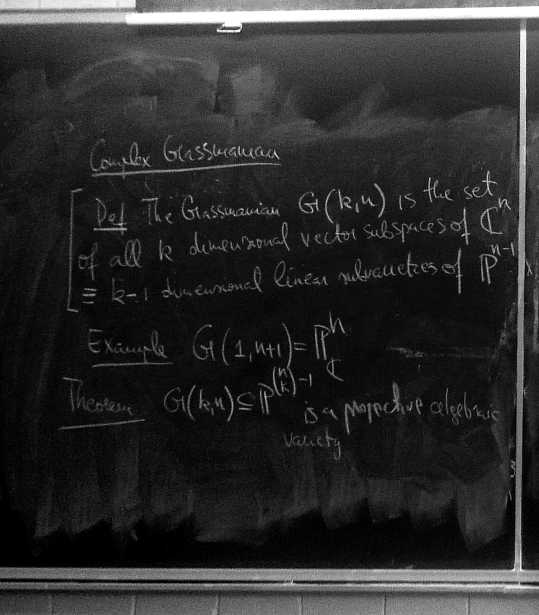 Complex Grassmanian
Def The Grassmanian G(k,n) is the set
of all k dimensional vector subspaces of ℂⁿ
≡ k-1 dimensional linear subvarieties of ℙⁿ⁻¹
Example G(1,n+1) = ℙⁿ_ℂ
Theorem G(k,n) ⊆ ℙ^{(n choose k)-1} is a projective algebraic
variety